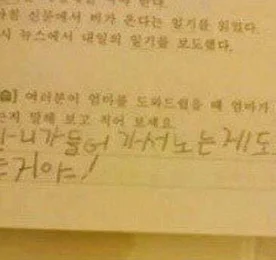 아침 신문에서 비가 온다는 일기를 읽었다.
시 뉴스에서 내일의 일기를 보도했다.
여러분이 엄마를 도와드릴 때 엄마가
는지 말해 보고 적어 보세요.
니가 들어 가서 노는 게 도
는거야!